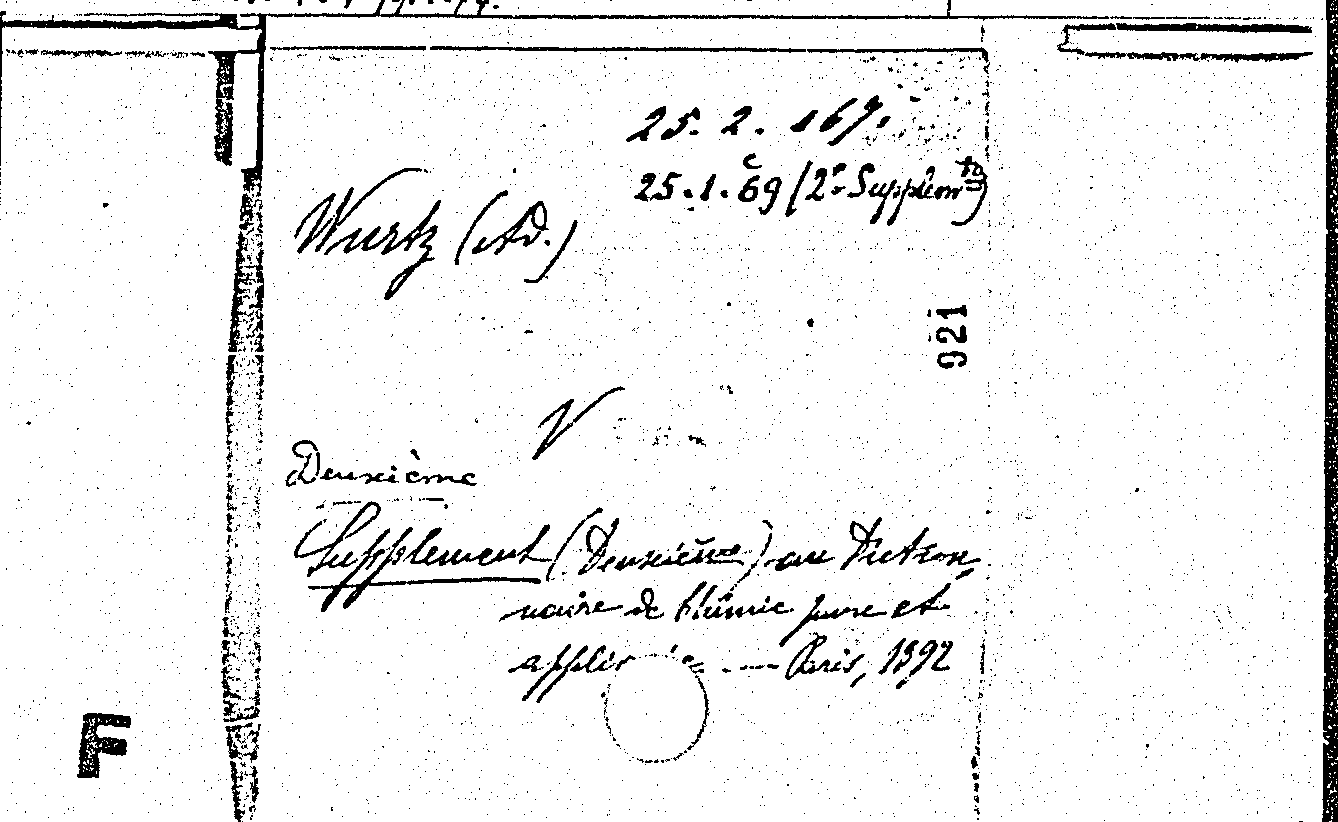 25. 2. 167.
25.1.69 (2e Supplemt)
Wurtz (Ad.)
921
V
Deuxième
Supplement (Deuxième) au Diction,
naire de Chimie pure et
Paris, 1892
F